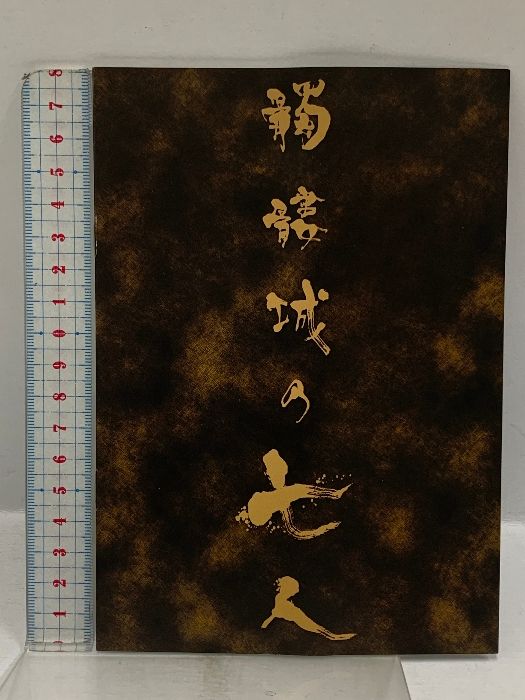 髑髏城の七人
8
7
6
5
4
3
2
1
0
9
8
7
6
5
4
3
2
1